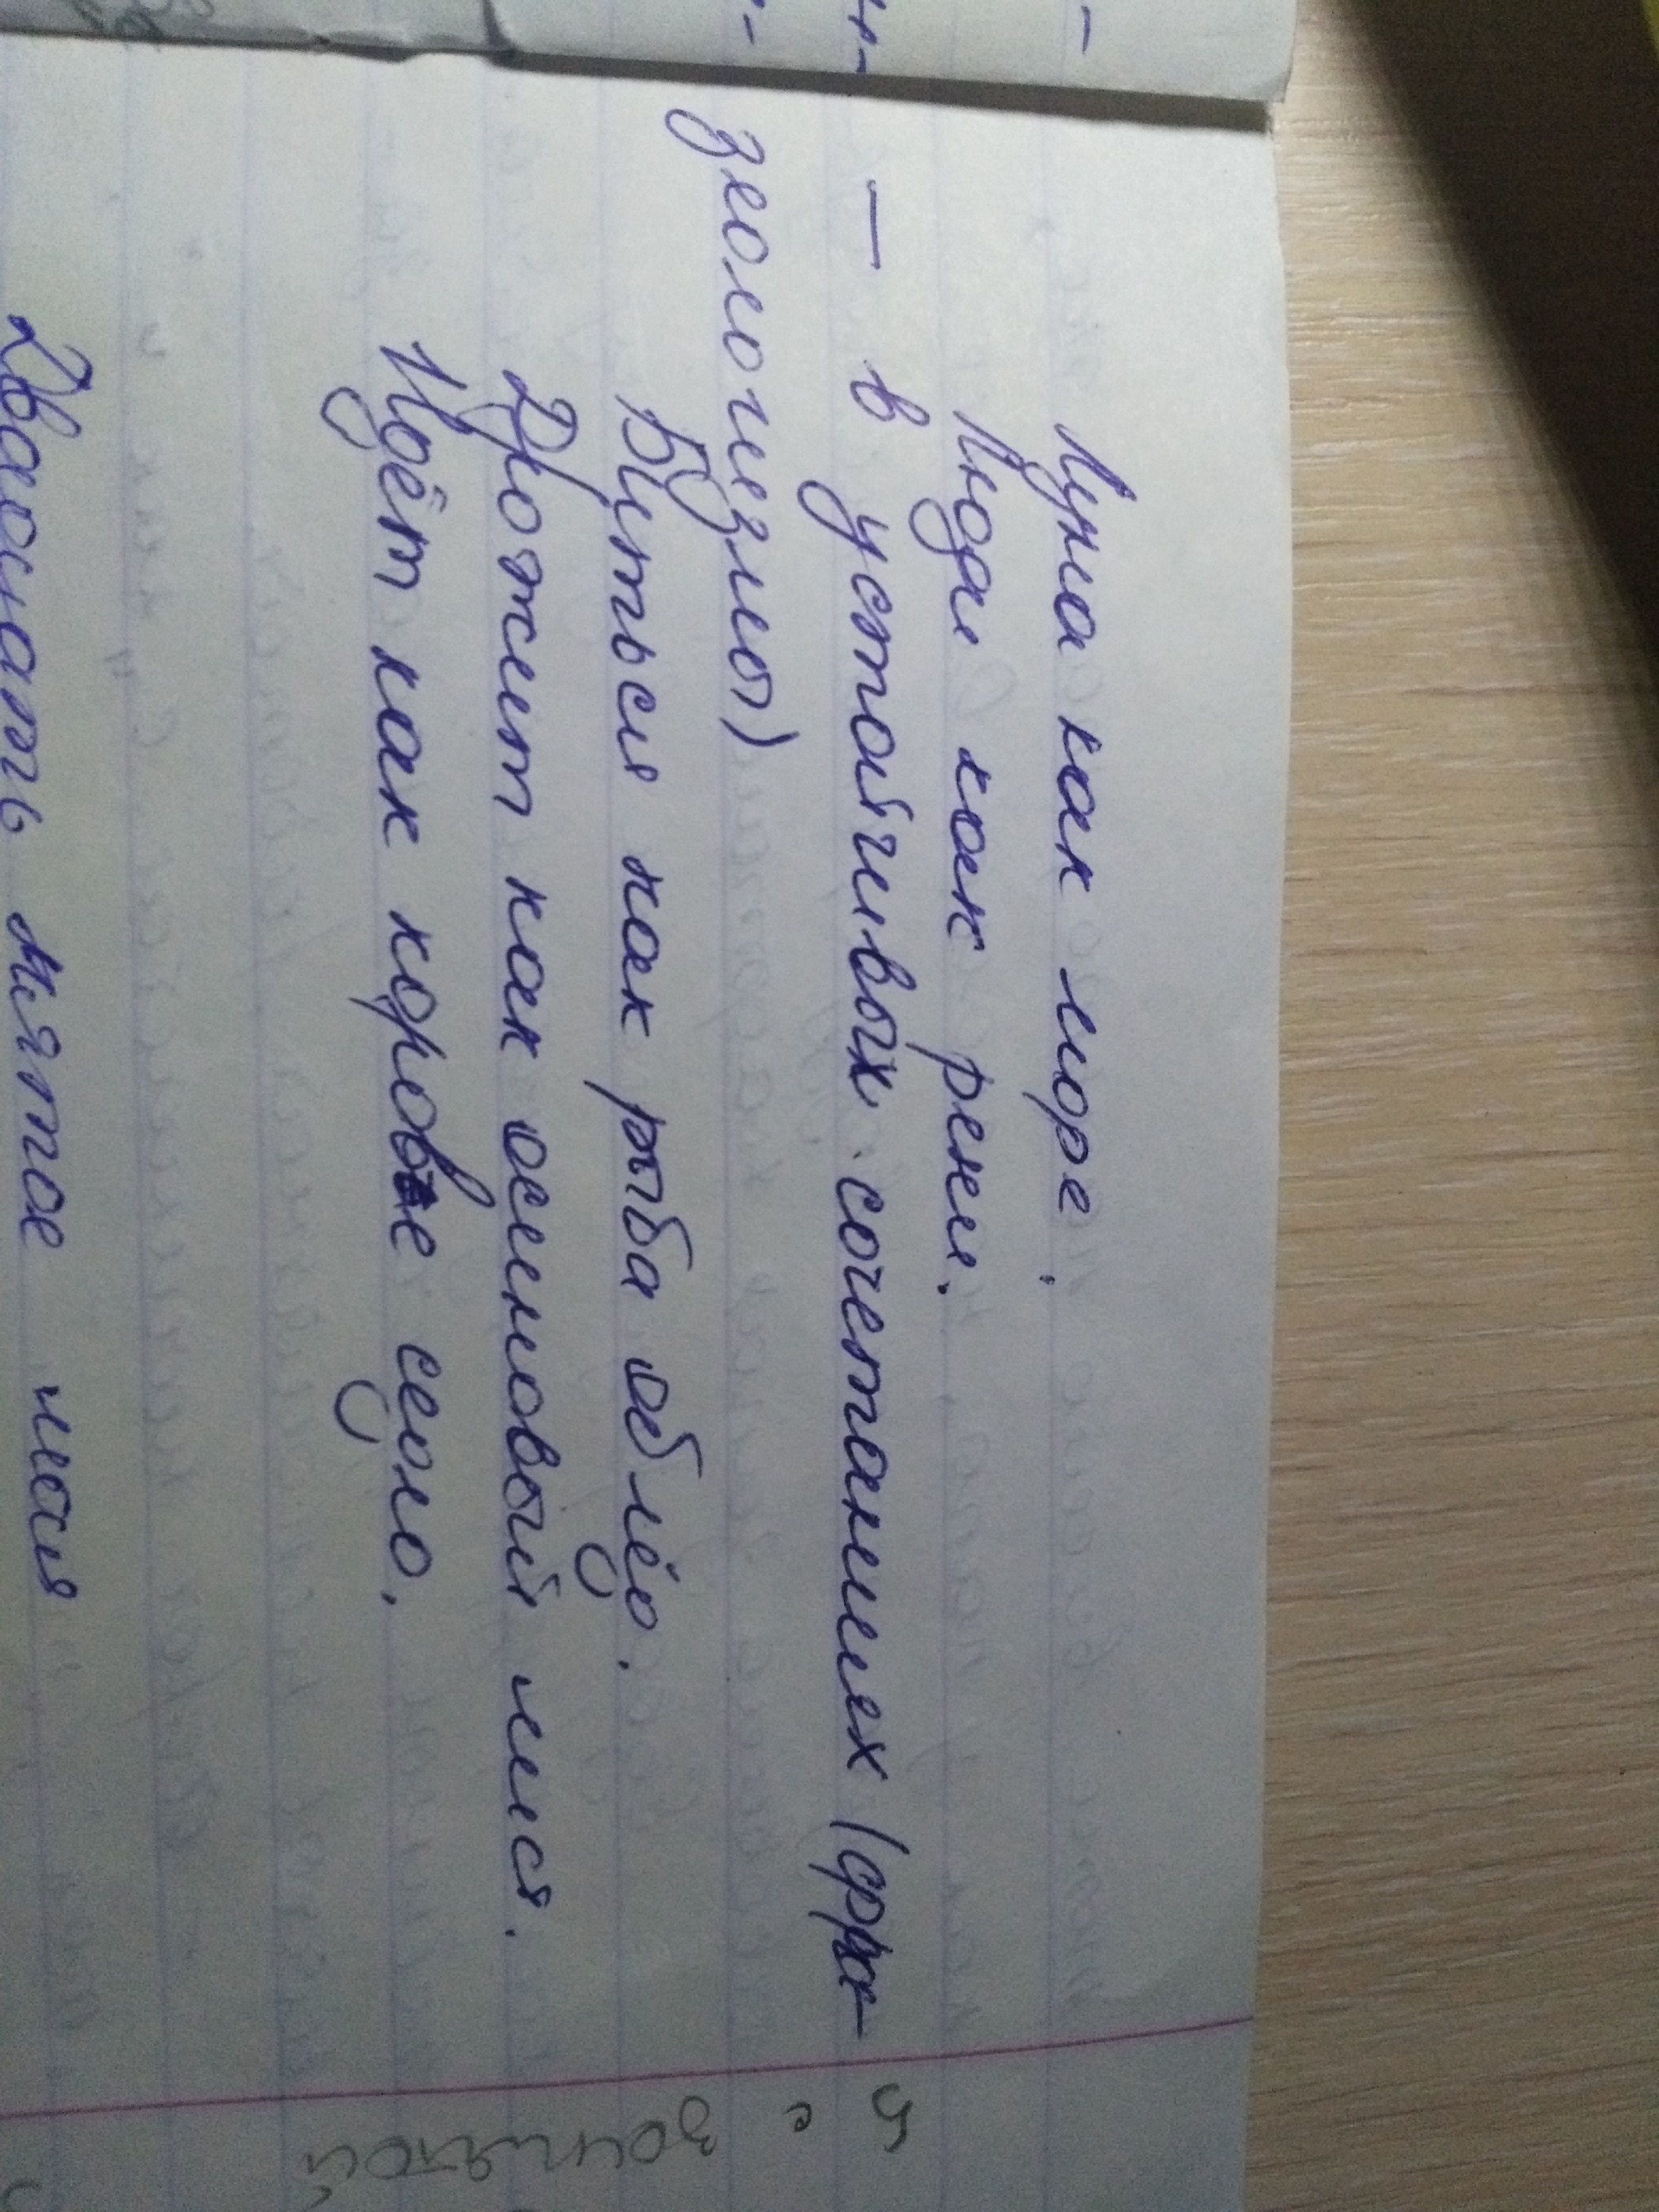 Луна как море.
Люди как реки.
— в устойчивых сочетаниях (фра-
зеологизмы)
Биться как рыба об лёд.
Дрожит как осиновый лист.
Идёт как корове седло.
Двадцать пятое мая
с
запятой